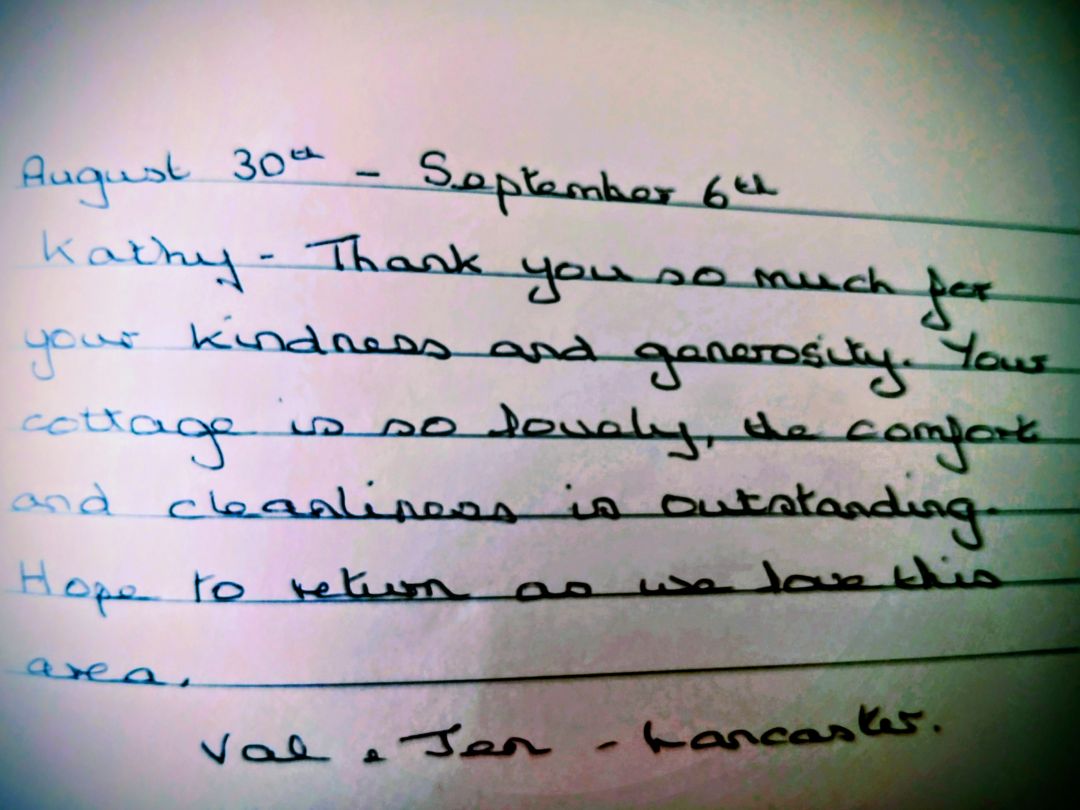 August 30th - September 6th
Kathy - Thank you so much for
your kindness and generosity. Your
cottage is so lovely, the comfort
and cleanliness is outstanding.
Hope to return as we love this
area.
Val & Jen - Lancaster.